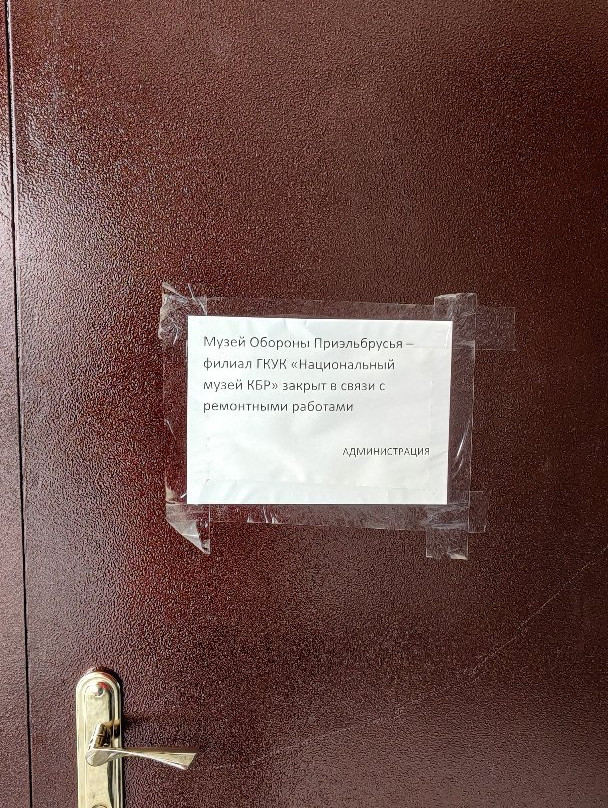 Музей Обороны Приэльбрусья –
филиал ГКУК «Национальный
музей КБР» закрыт в связи с
ремонтными работами
АДМИНИСТРАЦИЯ